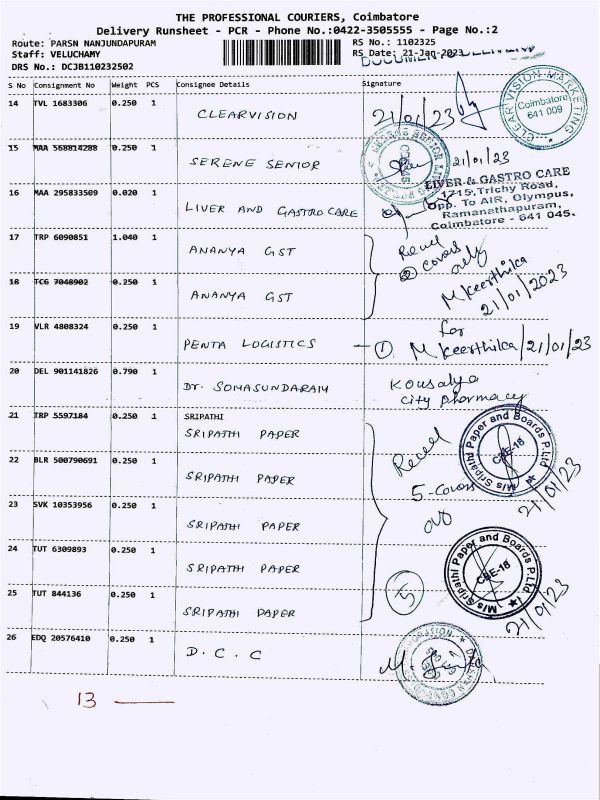 THE PROFESSIONAL COURIERS, Coimbatore
Delivery Runsheet - PCR - Phone No.:0422-3505555 - Page No.:2
Route: PARSN NANJUNDAPURAM
Staff: VELUCHAMY
DRS No.: DCJB110232502
RS No.: 1102325
RS Date: 21-Jan-2023
S No Consignment No Weight PCS Consignee Details Signature
14 TVL 1683306 0.250 1 CLEARVISION 21/01/23
CLEAR VISION MARKETING
Coimbatore
641 009
15 MAA 568814288 0.250 1 SERENE SENIOR 21/01/23
16 MAA 295833509 0.020 1 LIVER AND GASTRO CARE
LIVER & GASTRO CARE
1715, Trichy Road,
Opp. To AIR, Olympus,
Ramanathapuram,
Coimbatore - 641 045.
17 TRP 6090851 1.040 1 ANANYA GST
Recd
2 covers
only
18 TCG 7048902 0.250 1 ANANYA GST
M Keerthika
21/01/2023
for
19 VLR 4808324 0.250 1 PENTA LOGISTICS - 1. M Keerthika/21/01/23
20 DEL 901141826 0.790 1 DT. SOMASUNDARAM
Kousalya
City Pharmacy
21 TRP 5597184 0.250 1 SRIPATHI
SRIPATHI PAPER
M/s Sripathi Paper and Boards P.Ltd
CBE-18
22 BLR 500790691 0.250 1 SRIPATHI PAPER
Recd
5-Covers
21/01/23
23 SVK 10353956 0.250 1 SRIPATHI PAPER
24 TUT 6309893 0.250 1 SRIPATHI PAPER
M/s Sripathi Paper and Boards P.Ltd
CBE-18
25 TUT 844136 0.250 1 SRIPATHI PAPER
5
21/01/23
26 EDQ 20576410 0.250 1 D.C.C
13